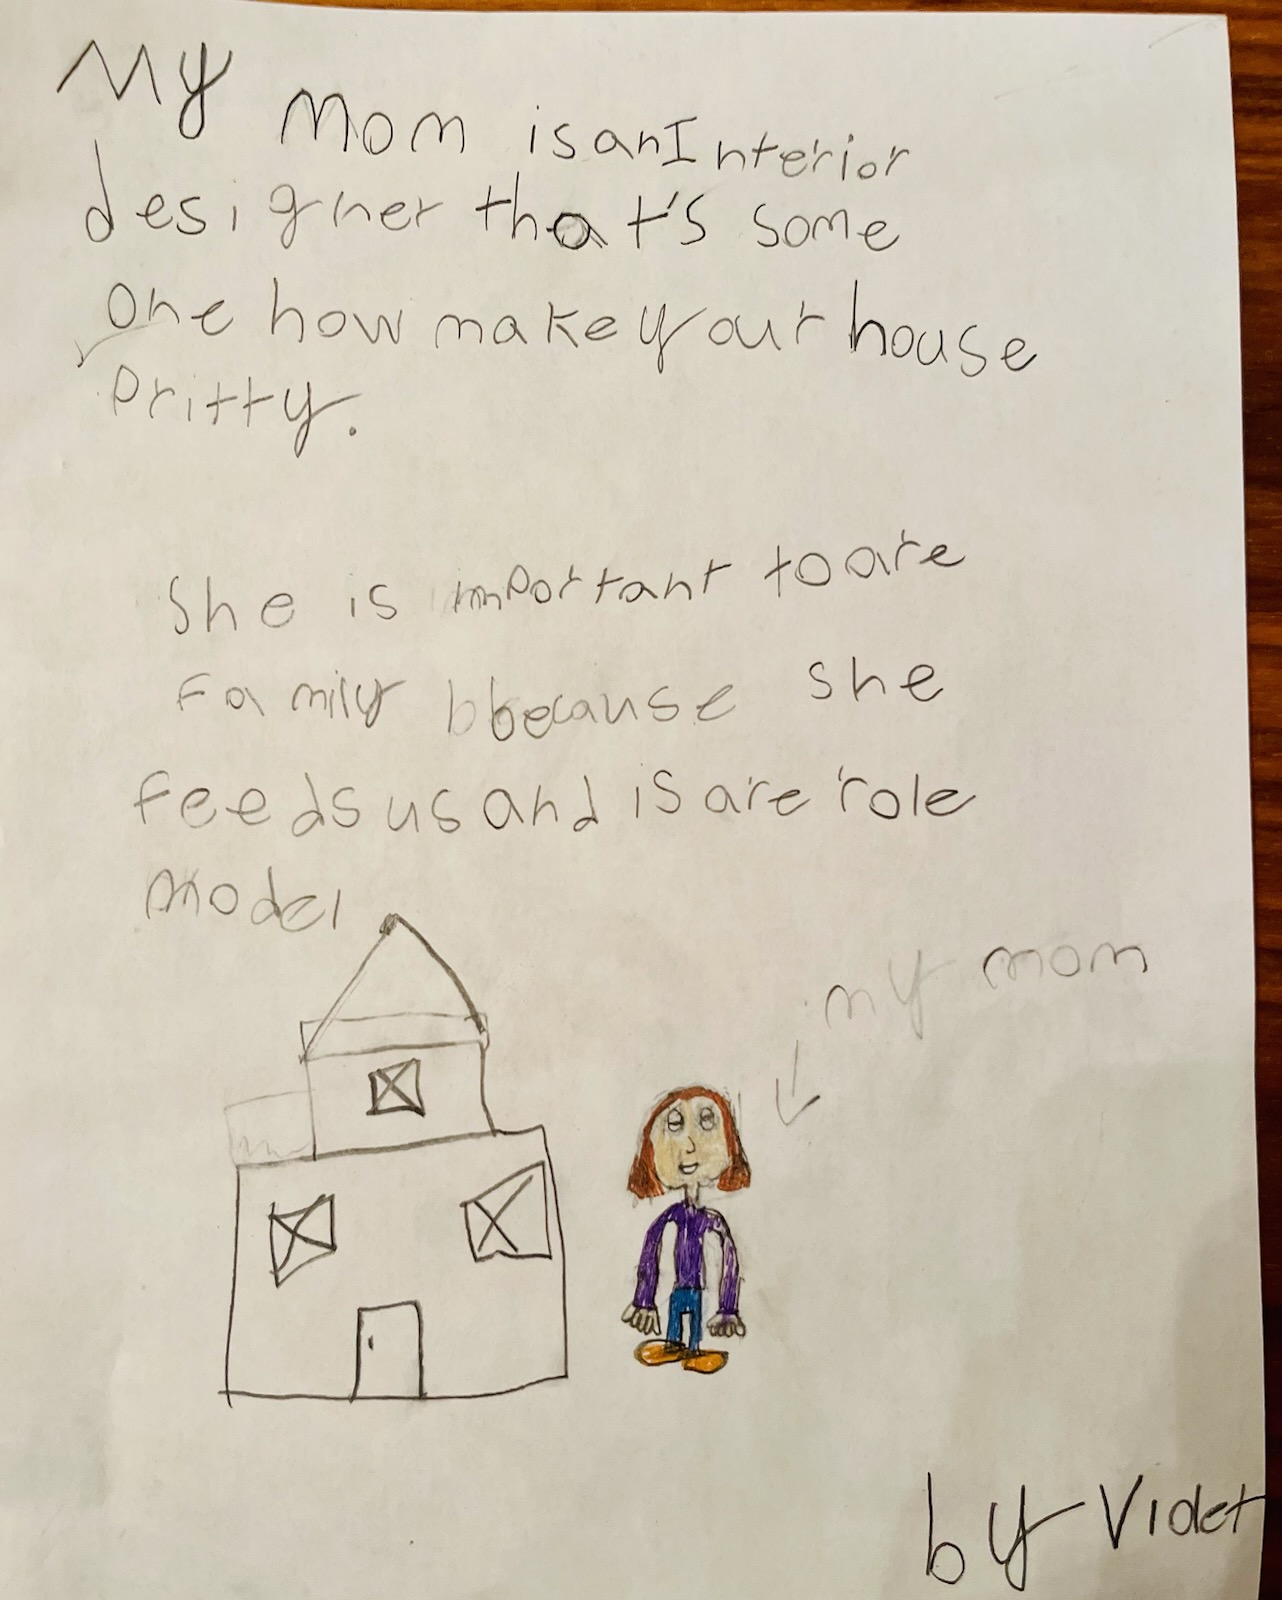 My Mom is an Interior
designer that's some
one how make your house
pritty.
She is important to are
Family because she
feeds us and is are role
model
my mom
by Violet